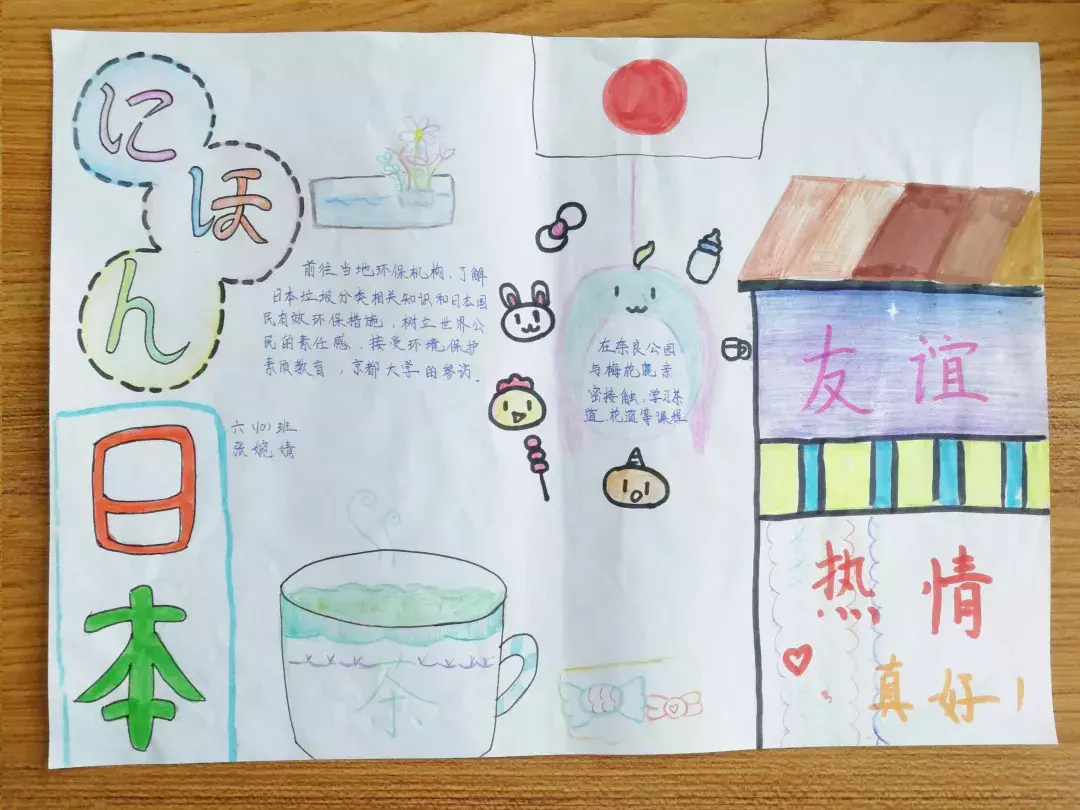 に
ほ
ん
日
本
前往当地环保机构,了解
日本垃圾分类相关知识和日本国
民有效环保措施,树立世界公
民的责任感,接受环境保护
素质教育,京都大学的参访.
六(10)班
张婉婧
在奈良公园
与梅花鹿亲
密接触,学习茶
道.花道等课程
茶
友谊
热情
真好!